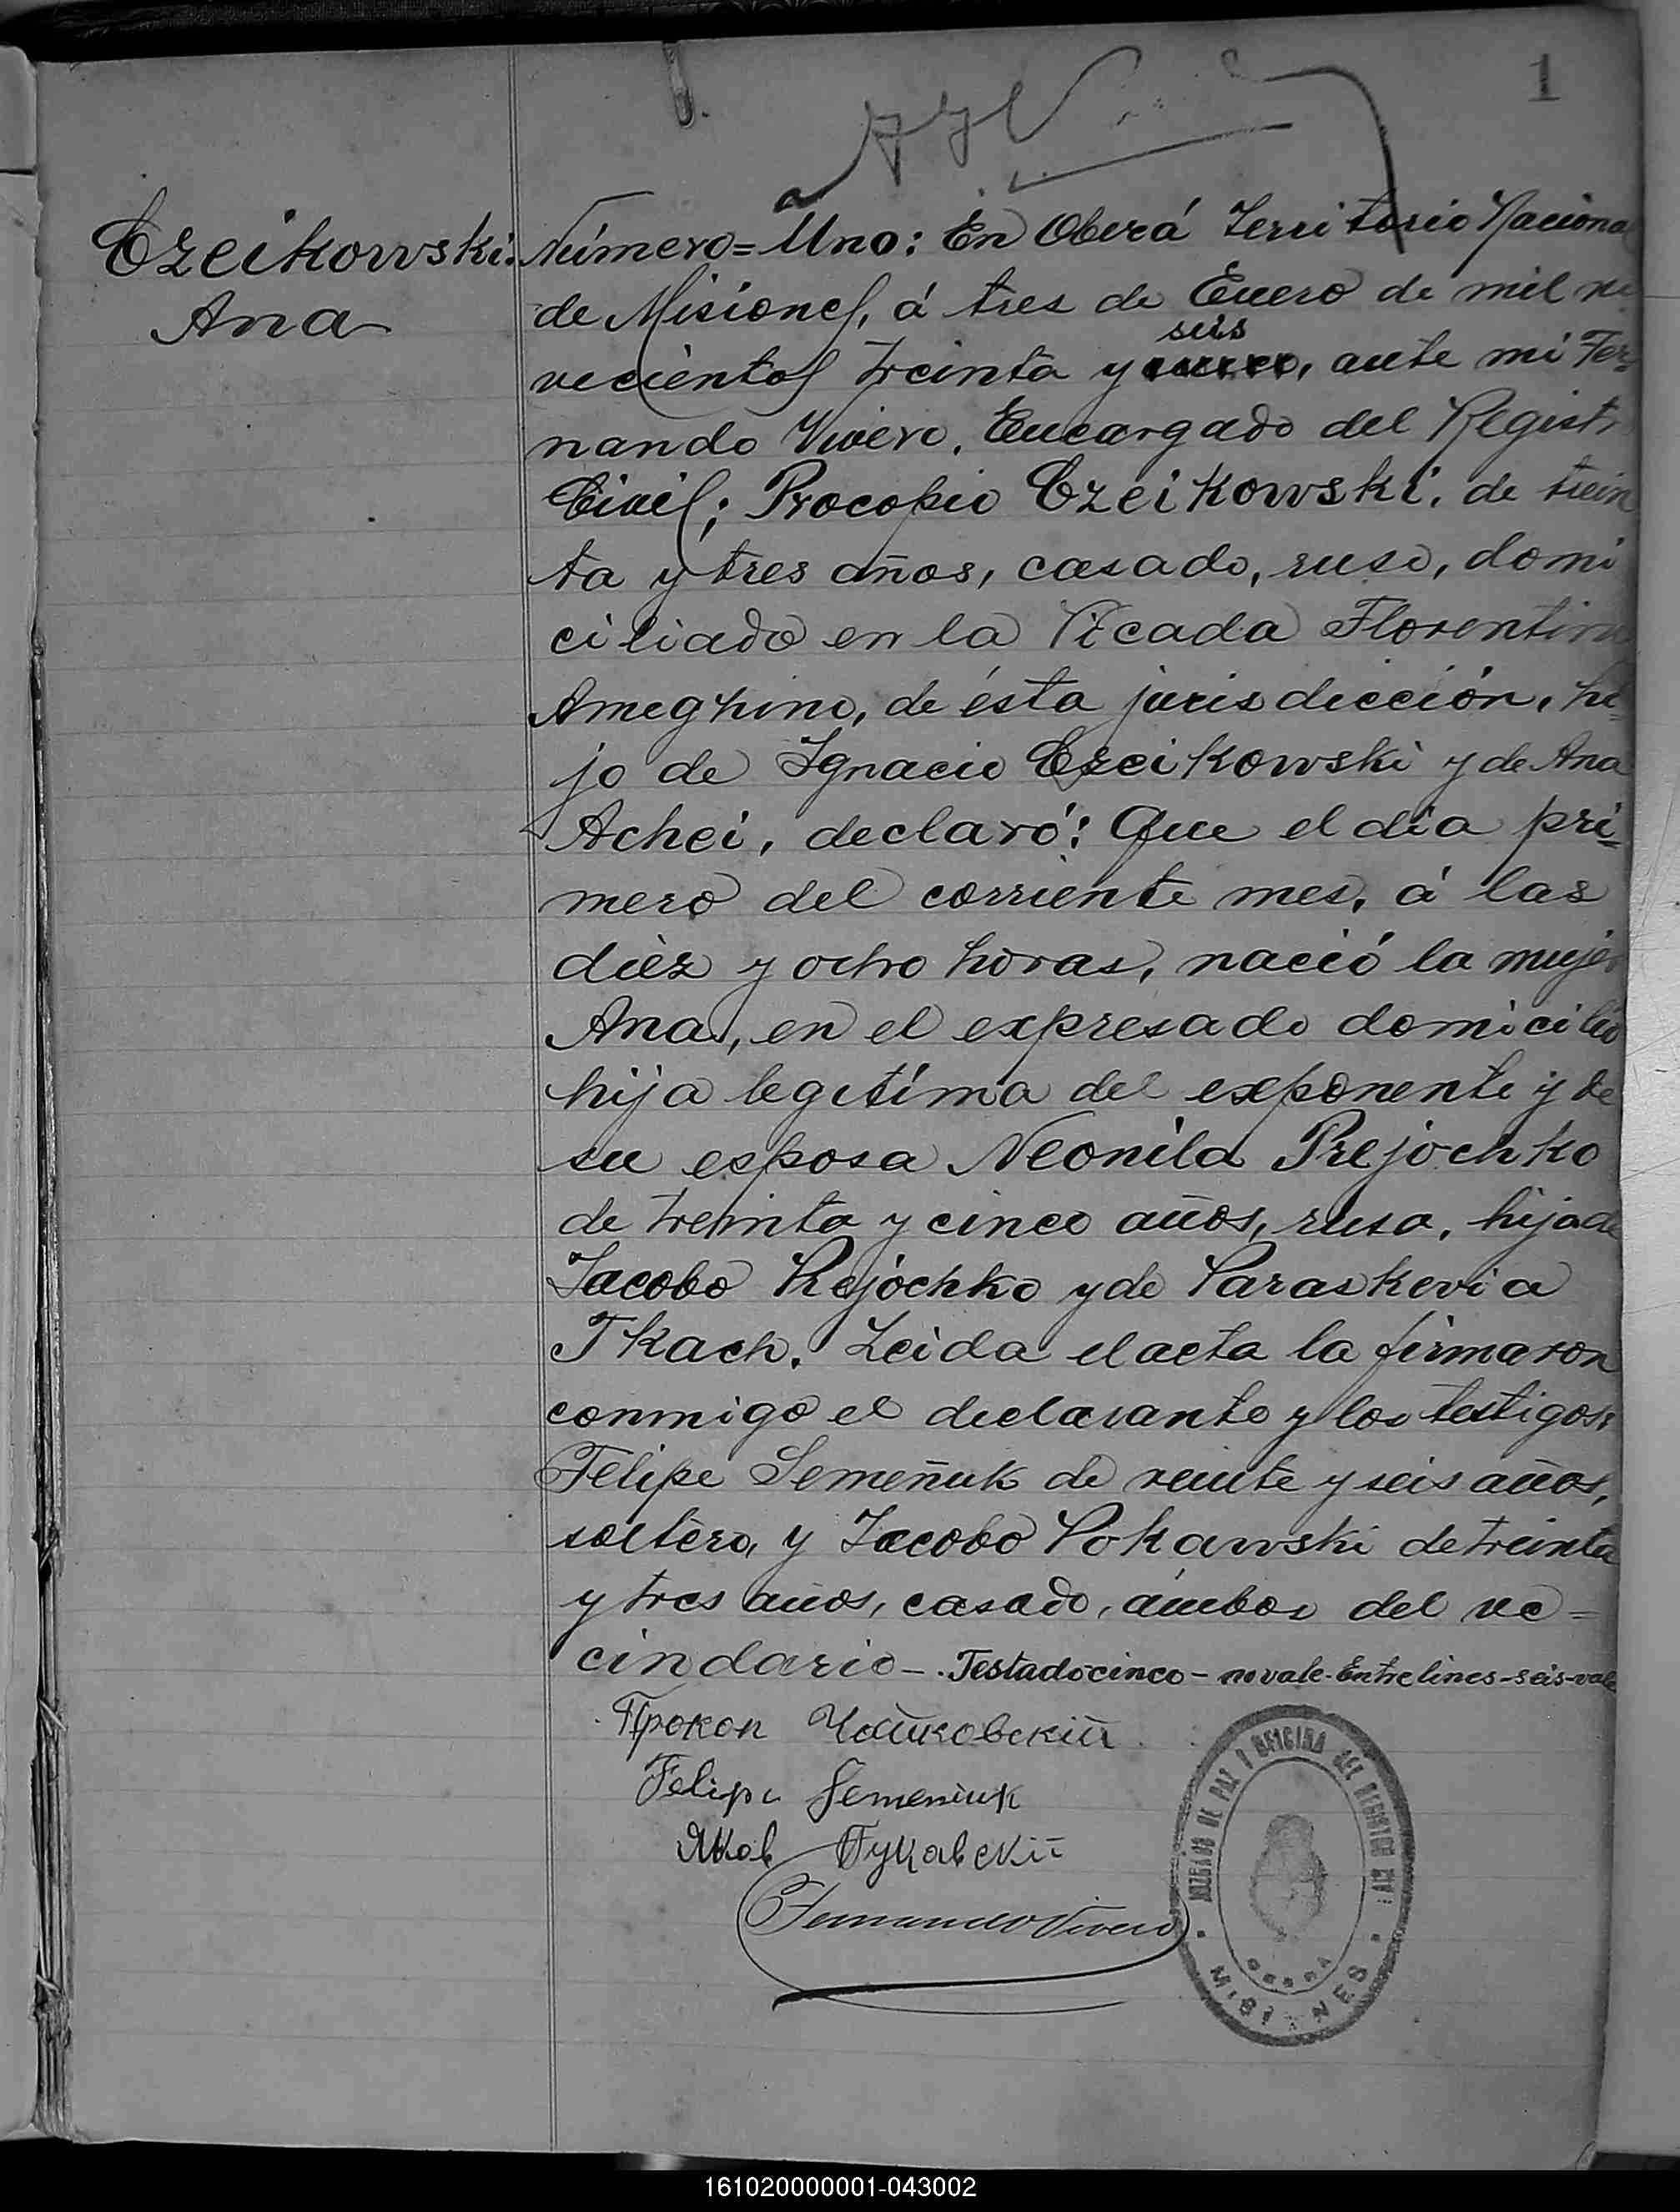 1
Czeikowski.
Ana
Número = Uno: En Oberá Territorio Naciona
de Misiones, á tres de Enero de mil no
seis
vecientos treinta y cinco, ante mi Fer=
nando Vivero, Encargado del Registr
Civil; Procopio Czeikowski, de trein
ta y tres años, casado, ruso, domi
ciliado en la Picada Florentino
Ameghino, de ésta jurisdicción, hi=
jo de Ignacio Czeikowski y de Ana
Achei, declaró: Que el día pri=
mero del corriente mes, á las
diez y ocho horas, nació la mujer
Ana, en el expresado domicilio
hija legítima del exponente y de
su esposa Neonila Prejochko
de treinta y cinco años, rusa, hija de
Jacobo Rejochko y de Paraskevia
Tkach. Leida el acta la firmaron
conmigo el declarante y los testigos:
Felipe Semeñuk de veinte y seis años,
soltero, y Jacobo Pokawski de treinta
y tres años, casado, ámbos del ve=
cindario-. Testado cinco - no vale. Entre lines - seis - vale
Прокоп Чайковский
Felipe Semeniuk
Яков Пукавский
Fernando Vivero
JUZGADO DE PAZ Y OFICINA DEL REGISTRO CIVIL
OBERA
MISIONES
161020000001-043002